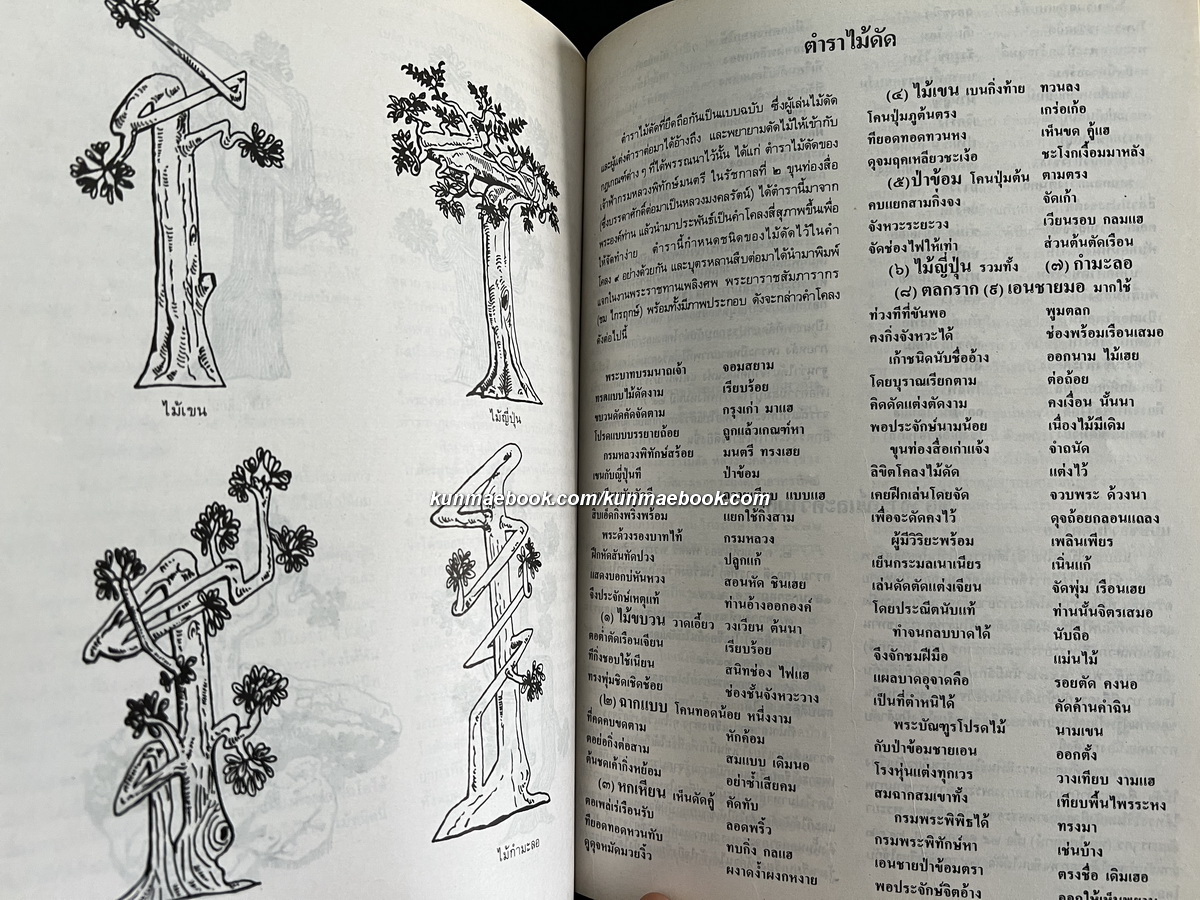 ไม้เขน
ไม้ญี่ปุ่น
ไม้กำมะลอ
kunmaebook.com/kunmaebook.com
ตำราไม้ดัด
ตำราไม้ดัดที่ยึดถือกันเป็นแบบฉบับ ซึ่งผู้เล่นไม้ดัด
และผู้แต่งตำราต่อมาได้อ้างถึง และพยายามดัดไม้ให้เข้ากับ
กฎเกณฑ์ต่าง ๆ ที่ได้พรรณนาไว้นั้น ได้แก่ ตำราไม้ดัดของ
เจ้าฟ้ากรมหลวงพิทักษ์มนตรี ในรัชกาลที่ ๒ ขุนท่องสื่อ
(ซึ่งบรรดาศักดิ์ต่อมาเป็นหลวงมงคลรัตน์) ได้ตำรานี้มาจาก
พระองค์ท่าน แล้วนำมาประพันธ์เป็นคำโคลงสี่สุภาพขึ้นเพื่อ
ให้จดทำง่าย ตำรานี้กำหนดชนิดของไม้ดัดไว้ในคำ
โคลง ๙ อย่างด้วยกัน และบุตรหลานสืบต่อมาได้นำมาพิมพ์
แจกในงานพระราชทานเพลิงศพ พระยาราชสัมภารากร
(ชม ไกรฤกษ์) พร้อมทั้งมีภาพประกอบ ดังจะกล่าวคำโคลง
ดังต่อไปนี้
พระบาทบรมนาถเจ้า จอมสยาม
ทรดแบบไม้ดัดงาม เรียบร้อย
ขบวนดัดคัดจัดตาม กรุงเก่า มาแฮ
โปรดแบบบรรยายถ้อย ถูกแล้วเกณฑ์หา
กรมหลวงพิทักษ์สร้อย มนตรี ทรงเฮย
เขนกับญี่ปุ่นที ป่าข้อม
แบบแฮ
สิบเอ็ดกิ่งพริ้งพร้อม แยกใช้กิ่งสาม
พระด้วงรองบาทไท้ กรมหลวง
ฝึกหัดสันทัดปวง ปลูกแก้
แสดงบอกปทันหวง สอนหัด ชินเฮย
จึงประจักษ์เหตุแท้ ท่านอ้างออกองค์
(๑) ไม้ขบวน วาดเอี้ยว วงเวียน ต้นนา
ตอต่ำตัดเรือนเจียน เรียบร้อย
ที่กิ่งชอบใช้เนียน สนิทช่อง ไฟแฮ
ทรงพุ่มชิดเชิดช้อย ช่องชั้นจังหวะวาง
(๒) ฉากแบบ โคนทอดน้อย หนึ่งงาม
ที่คดคบขดตาม หักค้อม
ตอย่อกิ่งต่อสาม สมแบบ เดิมนอ
ต้นขดเค้ากิ่งหย้อม อย่าซ้ำเสียคม
(๓) หกเหียน เห็นดัดคู้ คัดทับ
ตอเพล่เร่เรือนรับ ลอดพริ้ว
ที่ยอดทอดหวนทับ ทบกิ่ง กลแฮ
คูดุจหมัดมวยงิ้ว ผงาดง้ำผงกหงาย
(๔) ไม้เขน เบนกิ่งท้าย ทวนลง
โคนปุ่มภูต้นตรง เกร่อเก้อ
ทียอดทอดทวนหง เห็นขด คู้แฮ
ดุจมฤคเหลียวชะเง้อ ชะโงกเงื้อมมาหลัง
(๕) ป่าข้อม โคนปุ่มต้น ตามตรง
คบแยกสามกิ่งจง จัดเก้า
จังหวะระยะวง เวียนรอบ กลมแฮ
จัดช่องไฟให้เท่า ส่วนต้นตัดเรือน
(๖) ไม้ญี่ปุ่น รวมทั้ง (๗) กำมะลอ
(๘) ตลกราก (๙) เอนชายมอ มากใช้
ท่วงทีที่ขันพอ พูมตลก
คงกิ่งจังหวะได้ ช่องพร้อมเรือนเสมอ
เก้าชนิดนับชื่ออ้าง ออกนาม ไม้เฮย
โดยบุราณเรียกตาม ต่อถ้อย
คิดดัดแต่งตัดงาม คงเงื่อน นั้นนา
พอประจักษ์นามน้อย เนื่องไม้มีเดิม
ขุนท่องสื่อเก่าแจ้ง จำถนัด
ลิขิตโคลงไม้ดัด แต่งไว้
เคยฝึกเล่นโดยจัด จวบพระ ด้วงนา
เพื่อจะดัดคงไว้ ดุจถ้อยกลอนแถลง
ผู้มีวิริยะพร้อม เพลินเพียร
เย็นกระมลเนาเนียร เนิ่นแก้
เล่นดัดตัดแต่งเจียน จัดพุ่ม เรือนเฮย
โดยประณีตนับแท้ ท่านนั้นจิตรเสมอ
ทำจนกลบบาดได้ นับถือ
จึงจักชมฝีมือ แม่นไม้
แผลบาดอุจาดคือ รอยตัด คงนอ
เป็นที่ตำหนิได้ คัดค้านคำฉิน
พระบัณฑูรโปรดไม้ นามเขน
กับป่าข้อมชายเอน ออกตั้ง
โรงหุ่นแต่งทุกเวร วางเทียบ งามแฮ
สมฉากสมเขาทั้ง เทียบพื้นไพรระหง
กรมพระพิพิธได้ ทรงมา
กรมพระพิทักษ์หา เช่นบ้าง
เอนชายป่าข้อมตรา ตรงชื่อ เดิมเฮย
พอประจักษ์จิตอ้าง